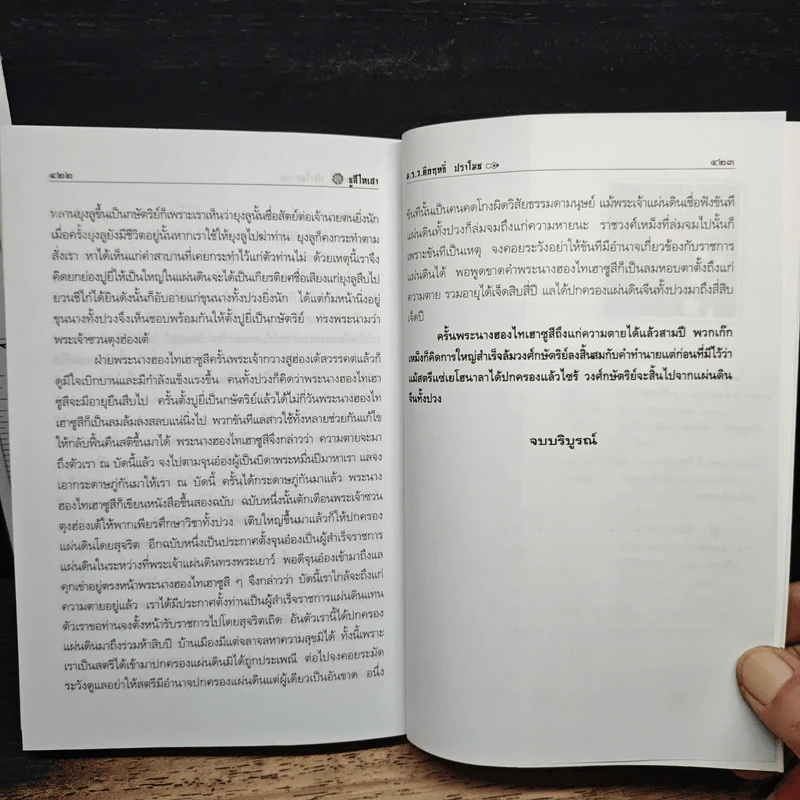 ๔๒๒ ซูสีไทเฮา
หลานยุงลูขึ้นเป็นกษัตริย์ก็เพราะเราเห็นว่ายุงลูนั้นซื่อสัตย์ต่อเจ้านายตนยิ่งนัก
เมื่อครั้งยุงลูยังมีชีวิตอยู่นั้นหากเราใช้ให้ยุงลูไปฆ่าท่าน ยุงลูก็คงกระทำตาม
สั่งเรา หาได้เห็นแก่คำสาบานที่เคยกระทำไว้แก่ตัวท่านไม่ ด้วยเหตุนี้เราจึง
คิดยกย่องปูยี่ให้เป็นใหญ่ในแผ่นดินจะได้เป็นเกียรติยศชื่อเสียงแก่ยุงลูสืบไป
ยวนซีไก๋ได้ยินดังนั้นก็อับอายแก่ขุนนางทั้งปวงยิ่งนัก ได้แต่ก้มหน้านิ่งอยู่
ขุนนางทั้งปวงจึงเห็นชอบพร้อมกันให้ตั้งปูยี่เป็นกษัตริย์ ทรงพระนามว่า
พระเจ้าชวนตุงฮ่องเต้
ฝ่ายพระนางฮองไทเฮาซูสีครั้นพระเจ้ากวางสูฮ่องเต้สวรรคตแล้วก็
ดูมีใจเบิกบานและมีกำลังแข็งแรงขึ้น คนทั้งปวงก็คิดว่าพระนางฮองไทเฮา
ซูสีจะมีอายุยืนสืบไป ครั้นตั้งปูยี่เป็นกษัตริย์แล้วได้ไม่กี่วันพระนางฮองไท
เฮาซูสีก็เป็นลมล้มลงสลบแน่นิ่งไป พวกขันทีแลสาวใช้ทั้งหลายช่วยกันแก้ไข
ให้กลับฟื้นคืนสติขึ้นมาได้ พระนางฮองไทเฮาซูสีจึงกล่าวว่า ความตายจะมา
ถึงตัวเรา ณ บัดนี้แล้ว จงไปตามจุนอ๋องผู้เป็นบิดาพระหมื่นปีมาหาเรา แลจง
เอากระดาษภู่กันมาให้เรา ณ บัดนี้ ครั้นได้กระดาษภู่กันมาแล้ว พระนาง
ฮองไทเฮาซูสีก็เขียนหนังสือขึ้นสองฉบับ ฉบับหนึ่งนั้นตักเตือนพระเจ้าชวน
ตุงฮ่องเต้ให้พากเพียรศึกษาวิชาทั้งปวง เติบใหญ่ขึ้นมาแล้วก็ให้ปกครอง
แผ่นดินโดยสุจริต อีกฉบับหนึ่งเป็นประกาศตั้งจุนอ๋องเป็นผู้สำเร็จราชการ
แผ่นดินในระหว่างที่พระเจ้าแผ่นดินทรงพระเยาว์ พอดีจุนอ๋องเข้ามาถึงแล
คุกเข่าอยู่ตรงหน้าพระนางฮองไทเฮาซูสี ๆ จึงกล่าวว่า บัดนี้เราใกล้จะถึงแก่
ความตายอยู่แล้ว เราได้มีประกาศตั้งท่านเป็นผู้สำเร็จราชการแผ่นดินแทน
ตัวเราขอท่านจงตั้งหน้ารับราชการไปโดยสุจริตเถิด อันตัวเรานี้ได้ปกครอง
แผ่นดินมาถึงร่วมห้าสิบปี บ้านเมืองมีแต่จลาจลหาความสุขมิได้ ทั้งนี้เพราะ
เราเป็นสตรีได้เข้ามาปกครองแผ่นดินมิได้ถูกประเพณี ต่อไปจงคอยระมัด
ระวังดูแลอย่าให้สตรีมีอำนาจปกครองแผ่นดินแต่ผู้เดียวเป็นอันขาด อนึ่ง
ม.ร.ว.คึกฤทธิ์ ปราโมช ๔๒๓
ขันทีนั้นเป็นคนคดโกงผิดวิสัยธรรมดามนุษย์ แม้พระเจ้าแผ่นดินเชื่อฟังขันที
แผ่นดินทั้งปวงก็ล่มจมถึงแก่ความหายนะ ราชวงศ์เหม็งที่ล่มจมไปนั้นก็
เพราะขันทีเป็นเหตุ จงคอยระวังอย่าให้ขันทีมีอำนาจเกี่ยวข้องกับราชการ
แผ่นดินได้ พอพูดขาดคำพระนางฮองไทเฮาซูสีก็เป็นลมหอบตาตั้งถึงแก่
ความตาย รวมอายุได้เจ็ดสิบสี่ปี แลได้ปกครองแผ่นดินจีนทั้งปวงมาถึงสี่สิบ
เจ็ดปี
ครั้นพระนางฮองไทเฮาซูสีถึงแก่ความตายได้แล้วสามปี พวกเก๊ก
เหม็งก็คิดการใหญ่สำเร็จล้มวงศ์กษัตริย์ลงสิ้นสมกับคำทำนายแต่ก่อนที่มีไว้ว่า
แม้สตรีแซ่เยโฮนาลาได้ปกครองแล้วไซร้ วงศ์กษัตริย์จะสิ้นไปจากแผ่นดิน
จีนทั้งปวง
จบบริบูรณ์